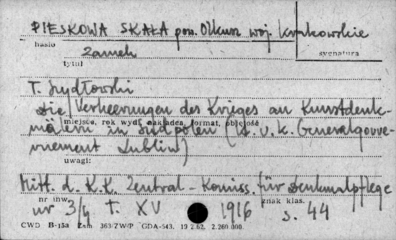 PIESKOWA SKAŁA pow. Olkusz woj. Krakowskie
hasło
sygnatura
Zamek
tytuł
T. Szydłowski
Die Verheerungen des Krieges an Kunstdenk-
miejsce, rok wyd., nakładca, format, objętość
mälern in Südpolen (K. u. k. Generalgouver-
nement Lublin)
uwagi:
Mitt. d. K.K. Zentral-Komiss. für Denkmalpflege
nr inw.
znak klas.
nr 3/4 T. XV 1916 s. 44
CWD B-15a Zam 363/ZW/P GDA-543. 19 2.62. 2.260.000.